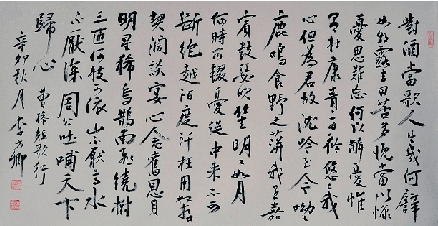 對酒當歌人生幾何譬
如朝露去日苦多慨當以慷
憂思難忘何以解憂惟
有杜康青青子衿悠悠我
心但為君故沈吟至今呦呦
鹿鳴食野之苹我有嘉
賓鼓瑟吹笙明明如月
何時可掇憂從中來不可
斷絕越陌度阡枉用相存
契闊談宴心念舊恩月
明星稀烏鵲南飛繞樹
三匝何枝可依山不厭高水
不厭深周公吐哺天下
歸心 曹操短歌行
辛卯秋月李